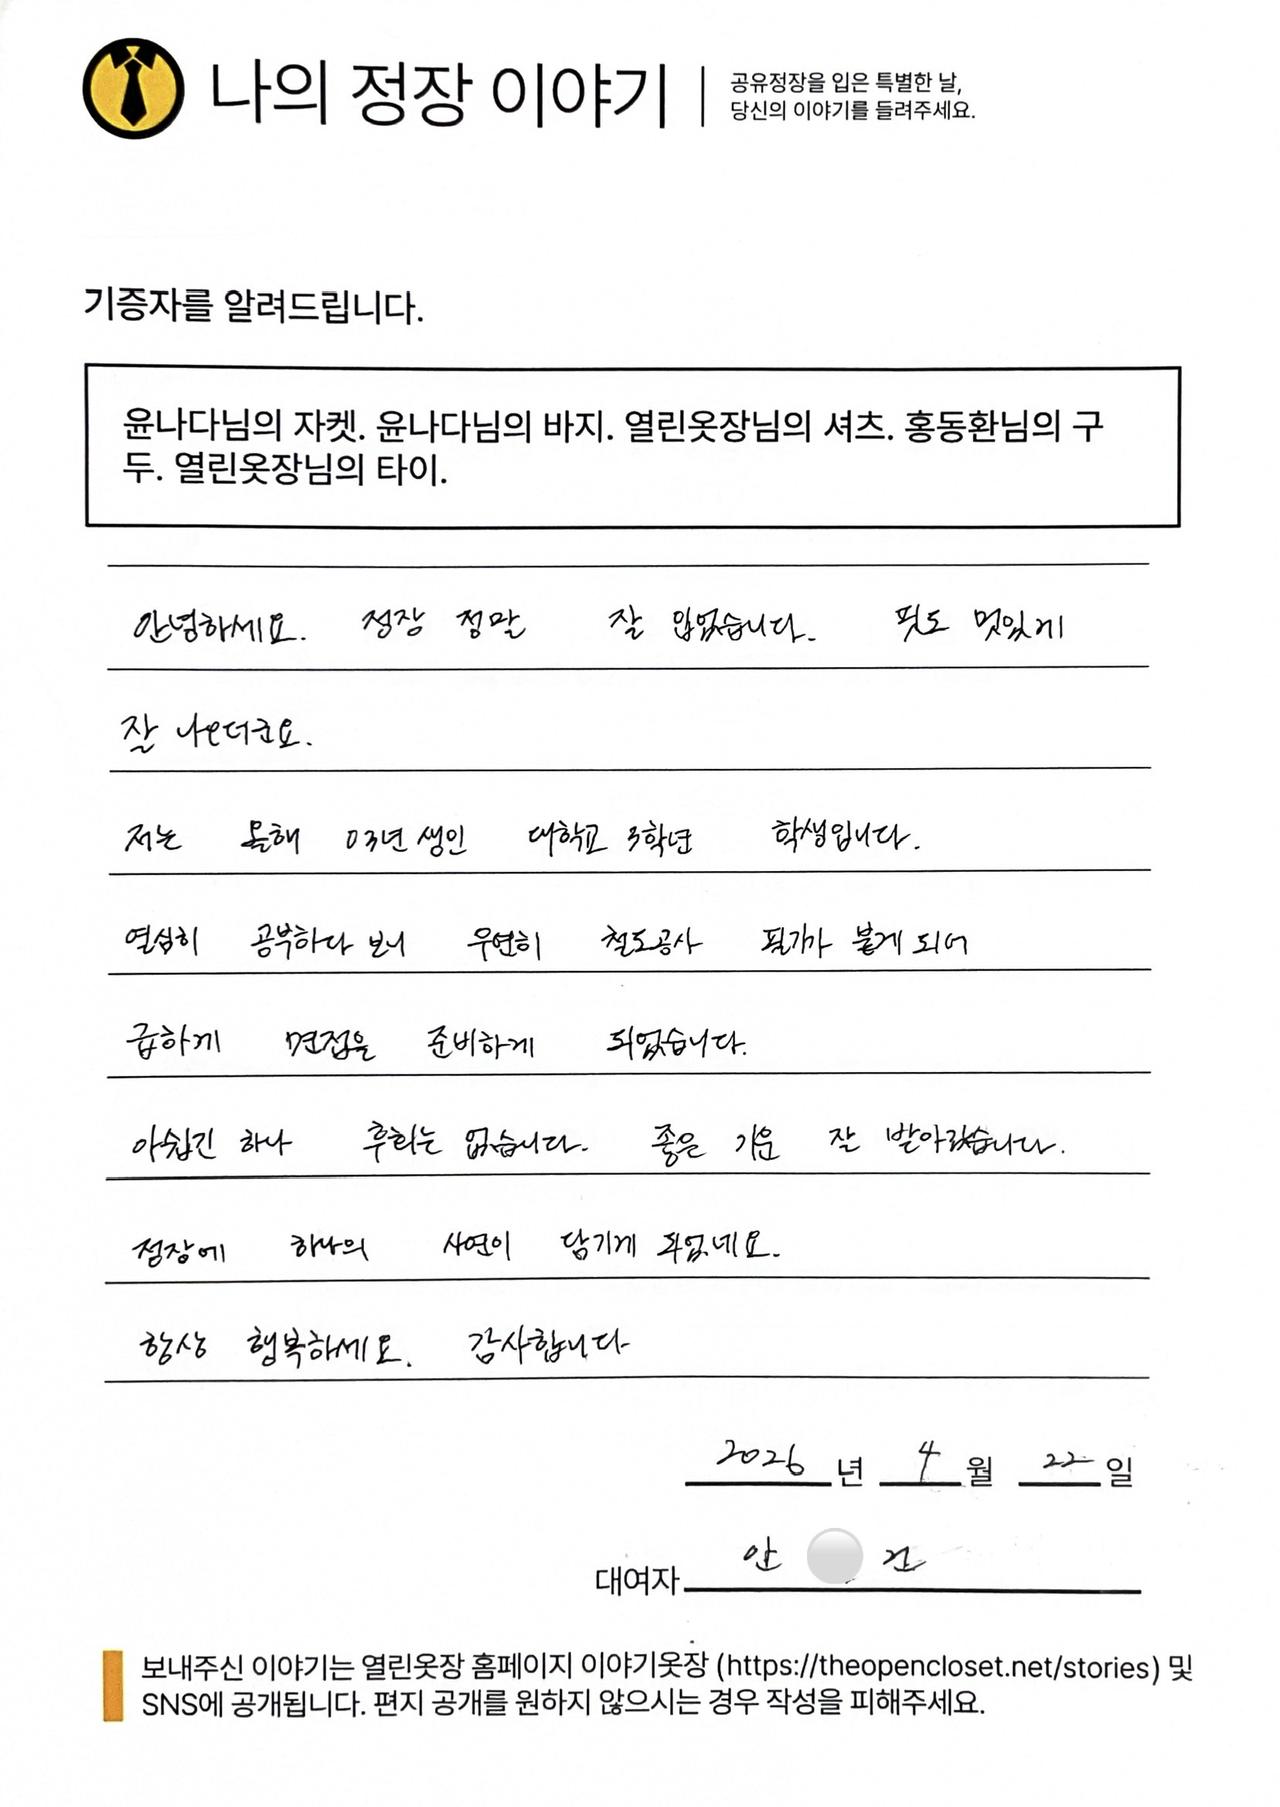 나의 정장 이야기
공유정장을 입은 특별한 날,
당신의 이야기를 들려주세요.
기증자를 알려드립니다.
윤나다님의 자켓. 윤나다님의 바지. 열린옷장님의 셔츠. 홍동환님의 구
두. 열린옷장님의 타이.
안녕하세요. 정장 정말 잘 입었습니다. 핏도 멋있게
잘 나오더군요.
저는 올해 03년생인 대학교 3학년 학생입니다.
열심히 공부하다 보니 우연히 철도공사 필기가 붙게 되어
급하게 면접을 준비하게 되었습니다.
아쉽긴 하나 후회는 없습니다. 좋은 기운 잘 받아갔습니다.
정장에 하나의 사연이 담기게 되었네요.
항상 행복하세요. 감사합니다
2026 년 4 월 22 일
대여자 안 건
보내주신 이야기는 열린옷장 홈페이지 이야기옷장 (https://theopencloset.net/stories) 및
SNS에 공개됩니다. 편지 공개를 원하지 않으시는 경우 작성을 피해주세요.